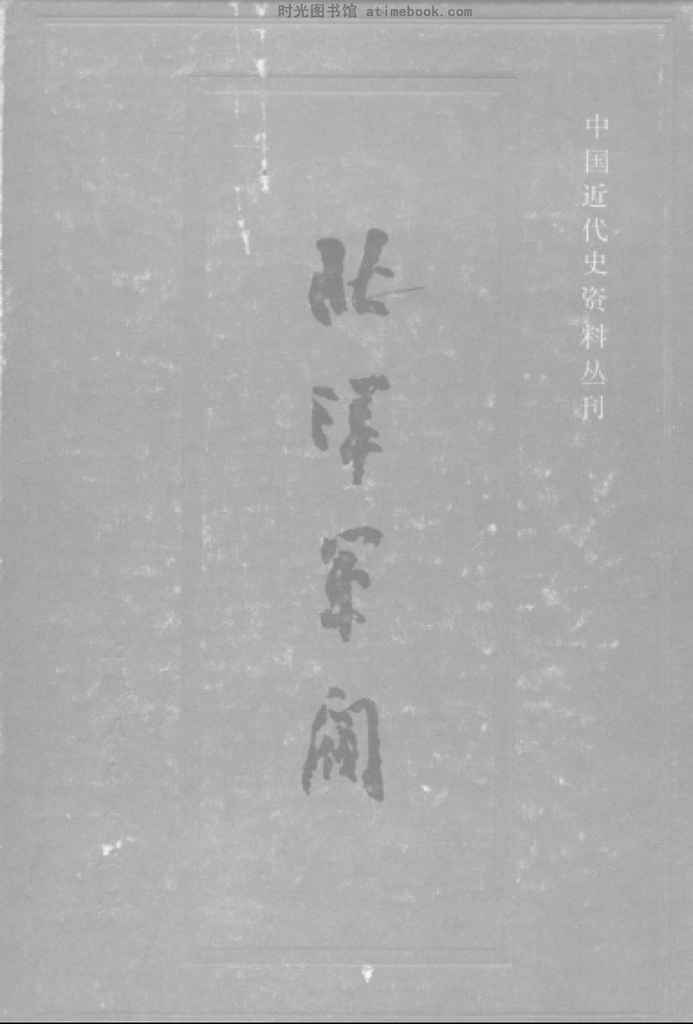 时光图书馆 atimebook.com
中国近代史资料丛刊
北洋军阀